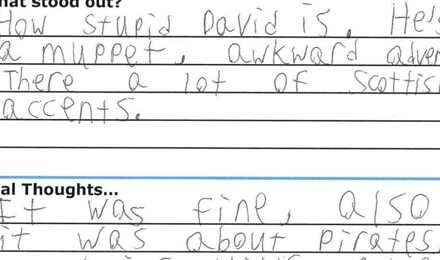 hat stood out?
How stupid David is. He's
a muppet, awkward adver
There a lot of Scottis
accents.
al Thoughts...
It was fine, also
it was about pirates